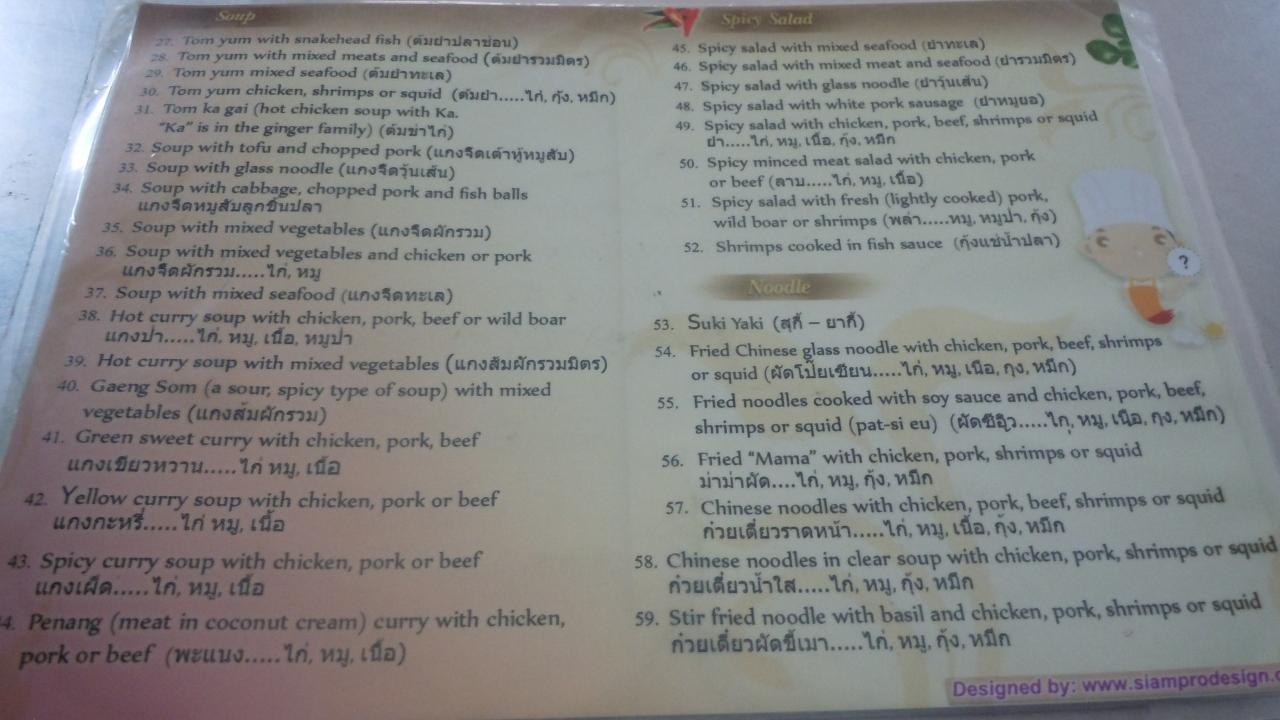 Soup
27. Tom yum with snakehead fish (ต้มยำปลาช่อน)
28. Tom yum with mixed meats and seafood (ต้มยำรวมมิตร)
29. Tom yum mixed seafood (ต้มยำทะเล)
30. Tom yum chicken, shrimps or squid (ต้มยำ.....ไก่, กุ้ง, หมึก)
31. Tom ka gai (hot chicken soup with Ka.
"Ka" is in the ginger family) (ต้มข่าไก่)
32. Soup with tofu and chopped pork (แกงจืดเต้าหู้หมูสับ)
33. Soup with glass noodle (แกงจืดวุ้นเส้น)
34. Soup with cabbage, chopped pork and fish balls
แกงจืดหมูสับลูกชิ้นปลา
35. Soup with mixed vegetables (แกงจืดผักรวม)
36. Soup with mixed vegetables and chicken or pork
แกงจืดผักรวม.....ไก่, หมู
37. Soup with mixed seafood (แกงจืดทะเล)
38. Hot curry soup with chicken, pork, beef or wild boar
แกงป่า.....ไก่, หมู, เนื้อ, หมูป่า
39. Hot curry soup with mixed vegetables (แกงส้มผักรวมมิตร)
40. Gaeng Som (a sour, spicy type of soup) with mixed
vegetables (แกงส้มผักรวม)
41. Green sweet curry with chicken, pork, beef
แกงเขียวหวาน.....ไก่ หมู, เนื้อ
42. Yellow curry soup with chicken, pork or beef
แกงกะหรี่.....ไก่ หมู, เนื้อ
43. Spicy curry soup with chicken, pork or beef
แกงเผ็ด.....ไก่, หมู, เนื้อ
4. Penang (meat in coconut cream) curry with chicken,
pork or beef (พะแนง.....ไก่, หมู, เนื้อ)
Spicy Salad
45. Spicy salad with mixed seafood (ยำทะเล)
46. Spicy salad with mixed meat and seafood (ยำรวมมิตร)
47. Spicy salad with glass noodle (ยำวุ้นเส้น)
48. Spicy salad with white pork sausage (ยำหมูยอ)
49. Spicy salad with chicken, pork, beef, shrimps or squid
ยำ.....ไก่, หมู, เนื้อ, กุ้ง, หมึก
50. Spicy minced meat salad with chicken, pork
or beef (ลาบ.....ไก่, หมู, เนื้อ)
51. Spicy salad with fresh (lightly cooked) pork,
wild boar or shrimps (พล่า.....หมู, หมูป่า, กุ้ง)
52. Shrimps cooked in fish sauce (กุ้งแช่น้ำปลา)
?
Noodle
53. Suki Yaki (สุกี้ – ยากี้)
54. Fried Chinese glass noodle with chicken, pork, beef, shrimps
or squid (ผัดโป๊ยเซียน.....ไก่, หมู, เนื้อ, กุ้ง, หมึก)
55. Fried noodles cooked with soy sauce and chicken, pork, beef,
shrimps or squid (pat-si eu) (ผัดซีอิ๊ว.....ไก่, หมู, เนื้อ, กุ้ง, หมึก)
56. Fried "Mama" with chicken, pork, shrimps or squid
ม่าม่าผัด....ไก่, หมู, กุ้ง, หมึก
57. Chinese noodles with chicken, pork, beef, shrimps or squid
ก๋วยเตี๋ยวราดหน้า.....ไก่, หมู, เนื้อ, กุ้ง, หมึก
58. Chinese noodles in clear soup with chicken, pork, shrimps or squid
ก๋วยเตี๋ยวน้ำใส.....ไก่, หมู, กุ้ง, หมึก
59. Stir fried noodle with basil and chicken, pork, shrimps or squid
ก๋วยเตี๋ยวผัดขี้เมา.....ไก่, หมู, กุ้ง, หมึก
Designed by: www.siamprodesign.c